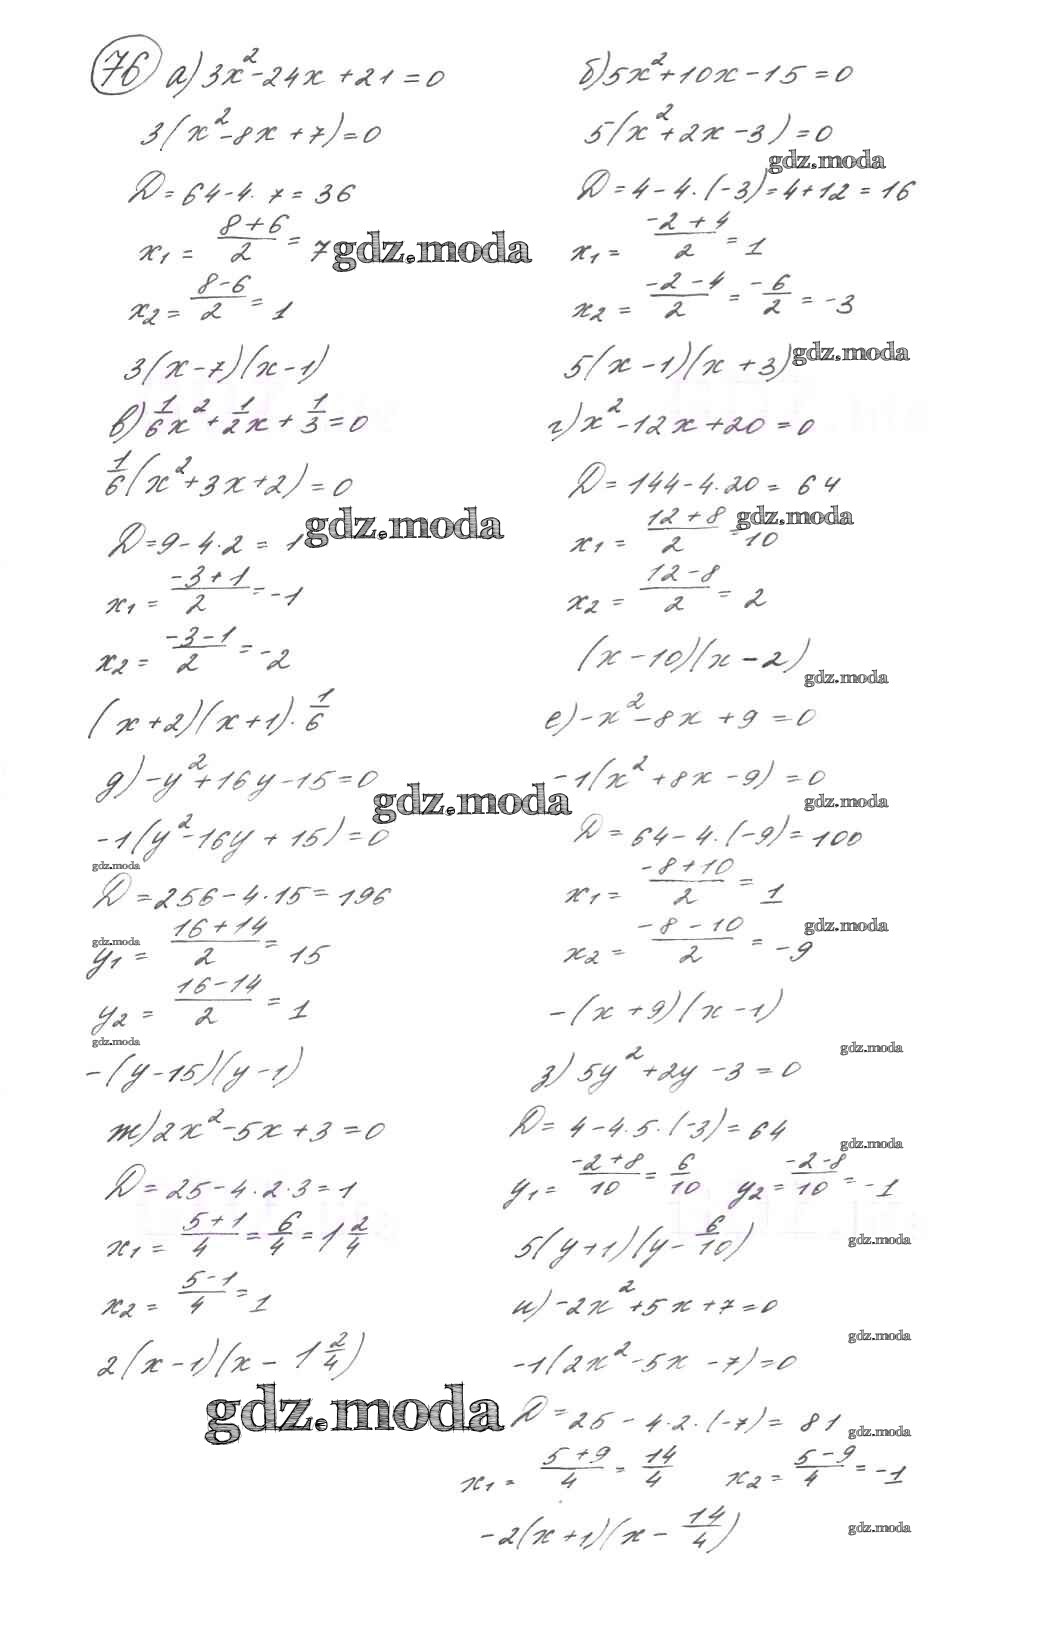 76 а) 3x² - 24x + 21 = 0
3(x² - 8x + 7) = 0
D = 64 - 4·7 = 36
x₁ = (8+6)/2 = 7
gdz.moda
x₂ = (8-6)/2 = 1
3(x-7)(x-1)
в) 1/6 x² + 1/2 x + 1/3 = 0
1/6 (x² + 3x + 2) = 0
gdz.moda
D = 9 - 4·2 = 1
x₁ = (-3+1)/2 = -1
x₂ = (-3-1)/2 = -2
(x+2)(x+1)·1/6
д) -y² + 16y - 15 = 0
gdz.moda
-1(y² - 16y + 15) = 0
gdz.moda
D = 256 - 4·15 = 196
gdz.moda
y₁ = (16+14)/2 = 15
y₂ = (16-14)/2 = 1
gdz.moda
-(y-15)(y-1)
ж) 2x² - 5x + 3 = 0
D = 25 - 4·2·3 = 1
x₁ = (5+1)/4 = 6/4 = 1 2/4
x₂ = (5-1)/4 = 1
2(x-1)(x - 1 2/4)
gdz.moda
б) 5x² + 10x - 15 = 0
5(x² + 2x - 3) = 0
gdz.moda
D = 4 - 4·(-3) = 4 + 12 = 16
x₁ = (-2+4)/2 = 1
x₂ = (-2-4)/2 = -6/2 = -3
5(x-1)(x+3)
gdz.moda
г) x² - 12x + 20 = 0
D = 144 - 4·20 = 64
gdz.moda
x₁ = (12+8)/2 = 10
x₂ = (12-8)/2 = 2
(x-10)(x-2)
gdz.moda
е) -x² - 8x + 9 = 0
-1(x² + 8x - 9) = 0
gdz.moda
D = 64 - 4·(-9) = 100
x₁ = (-8+10)/2 = 1
gdz.moda
x₂ = (-8-10)/2 = -9
-(x+9)(x-1)
gdz.moda
з) 5y² + 2y - 3 = 0
D = 4 - 4·5·(-3) = 64
gdz.moda
y₁ = (-2+8)/10 = 6/10 y₂ = (-2-8)/10 = -1
5(y+1)(y - 6/10)
gdz.moda
и) -2x² + 5x + 7 = 0
gdz.moda
-1(2x² - 5x - 7) = 0
D = 25 - 4·2·(-7) = 81
gdz.moda
x₁ = (5+9)/4 = 14/4 x₂ = (5-9)/4 = -1
-2(x+1)(x - 14/4)
gdz.moda